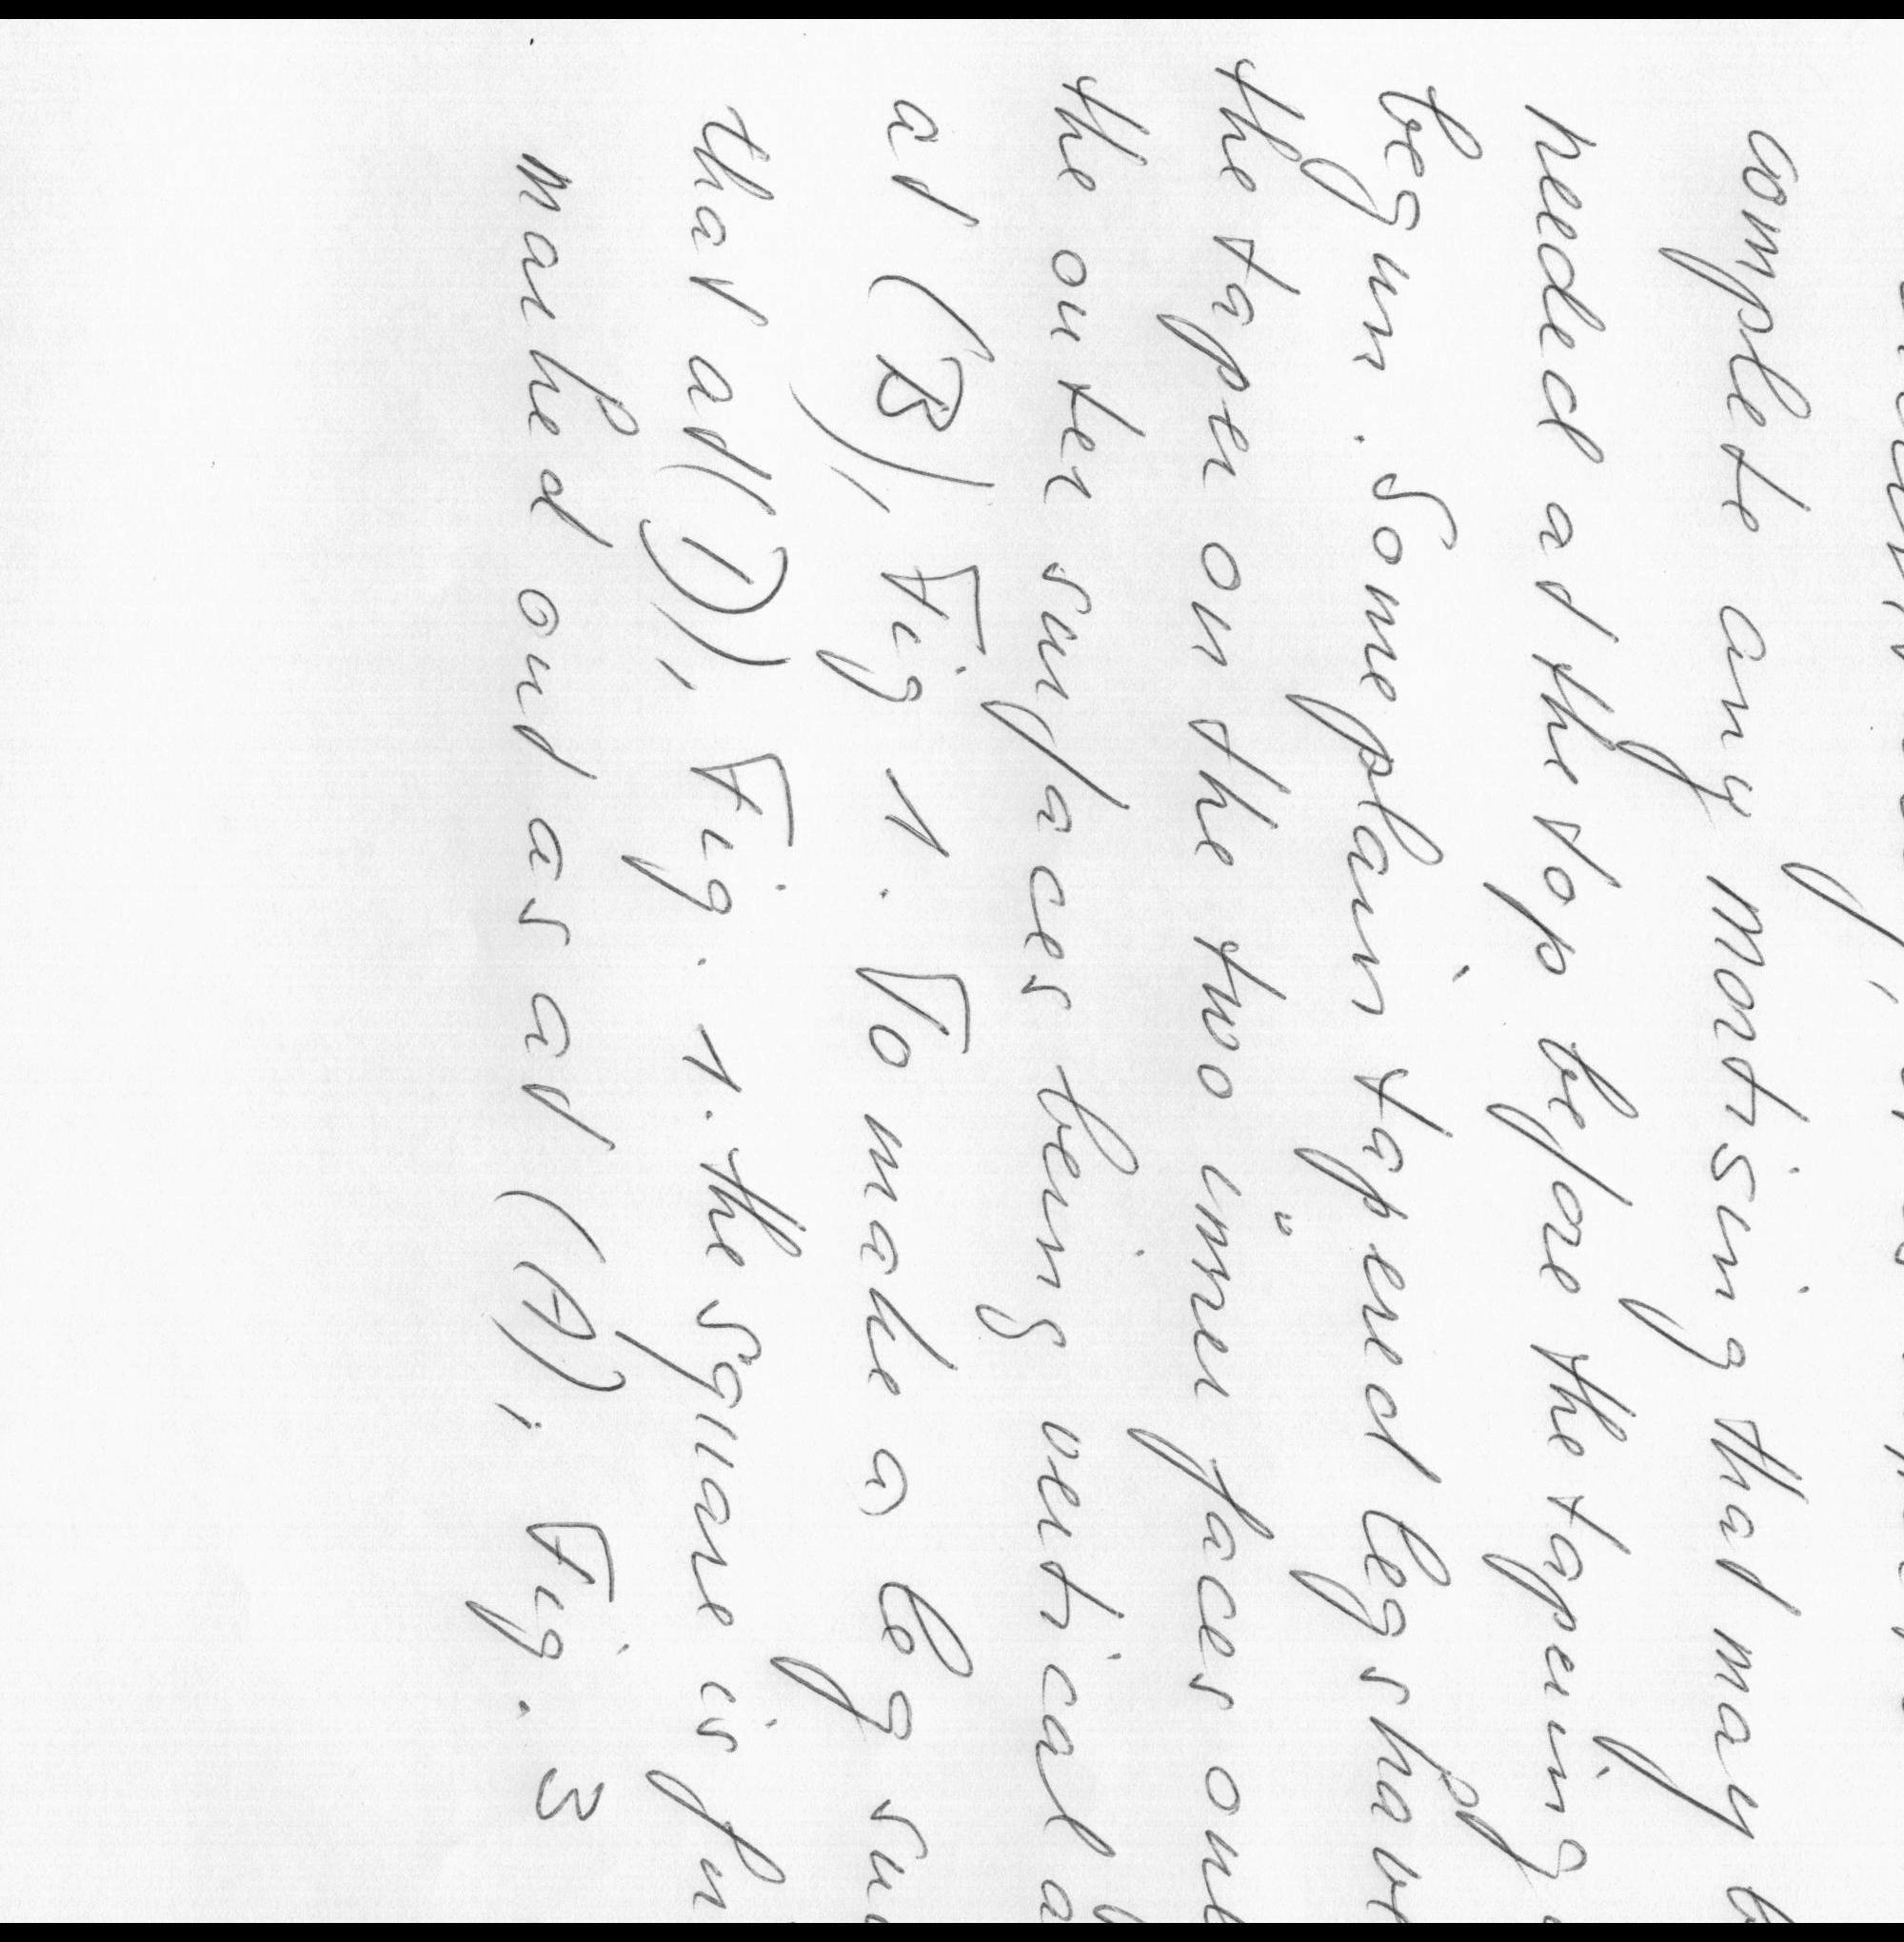 complete any mortising that may
needed at the top before the tapering
begun. Some plain tapered legs have
the taper on the two inner faces only
the outer surfaces being vertical
at (B), Fig 1. To make a leg
that at (D), Fig. 1. the square is
marked out as at (A), Fig. 3